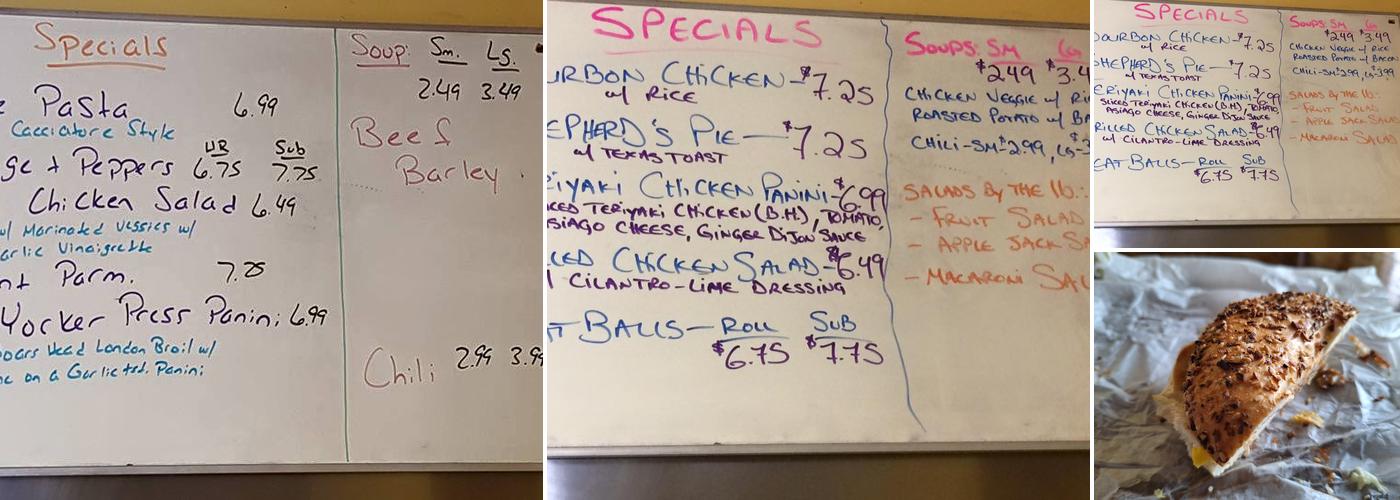 Specials
Pasta 6.99
Cacciatore Style
HR Sub
+ Peppers 6.75 7.75
Chicken Salad 6.49
w/ Marinated Veggies w/
Vinaigrette
Parm. 7.25
Yorker Press Panini 6.99
Head London Broil w/
on a Garlic tst. Panini
Soup: Sm. LG.
2.49 3.49
Beef
Barley
Chili 2.99 3.99
SPECIALS
CHICKEN-$7.25
w/ RICE
PIE-$7.25
w/ TEXAS TOAST
CHICKEN PANINI-$6.99
TERIYAKI CHICKEN (B.H.), TOMATO,
CHEESE, GINGER DIJON SAUCE
CHICKEN SALAD-$6.49
CILANTRO-LIME DRESSING
BALLS- ROLL SUB
$6.75 $7.75
SOUPS: SM LG
$2.49
CHICKEN VEGGIE w/
ROASTED POTATO w/
CHILI-SM-$2.99, LG-
SALADS BY THE lb.:
- FRUIT SALAD
- APPLE JACK
- MACARONI
SPECIALS
CHICKEN-$7.25
w/ RICE
PIE-$7.25
w/ TEXAS TOAST
CHICKEN PANINI-$6.99
SLICED TERIYAKI CHICKEN (B.H.), TOMATO,
ASIAGO CHEESE, GINGER DIJON SAUCE
CHICKEN SALAD-$6.49
w/ CILANTRO-LIME DRESSING
BALLS- ROLL SUB
$6.75 $7.75
SOUPS: SM LG
$2.49 $3.49
CHICKEN VEGGIE w/ RICE
ROASTED POTATO w/ BACON
CHILI-SM-$2.99, LG-$3.99
SALADS BY THE lb.:
- FRUIT SALAD
- APPLE JACK
- MACARONI SALAD